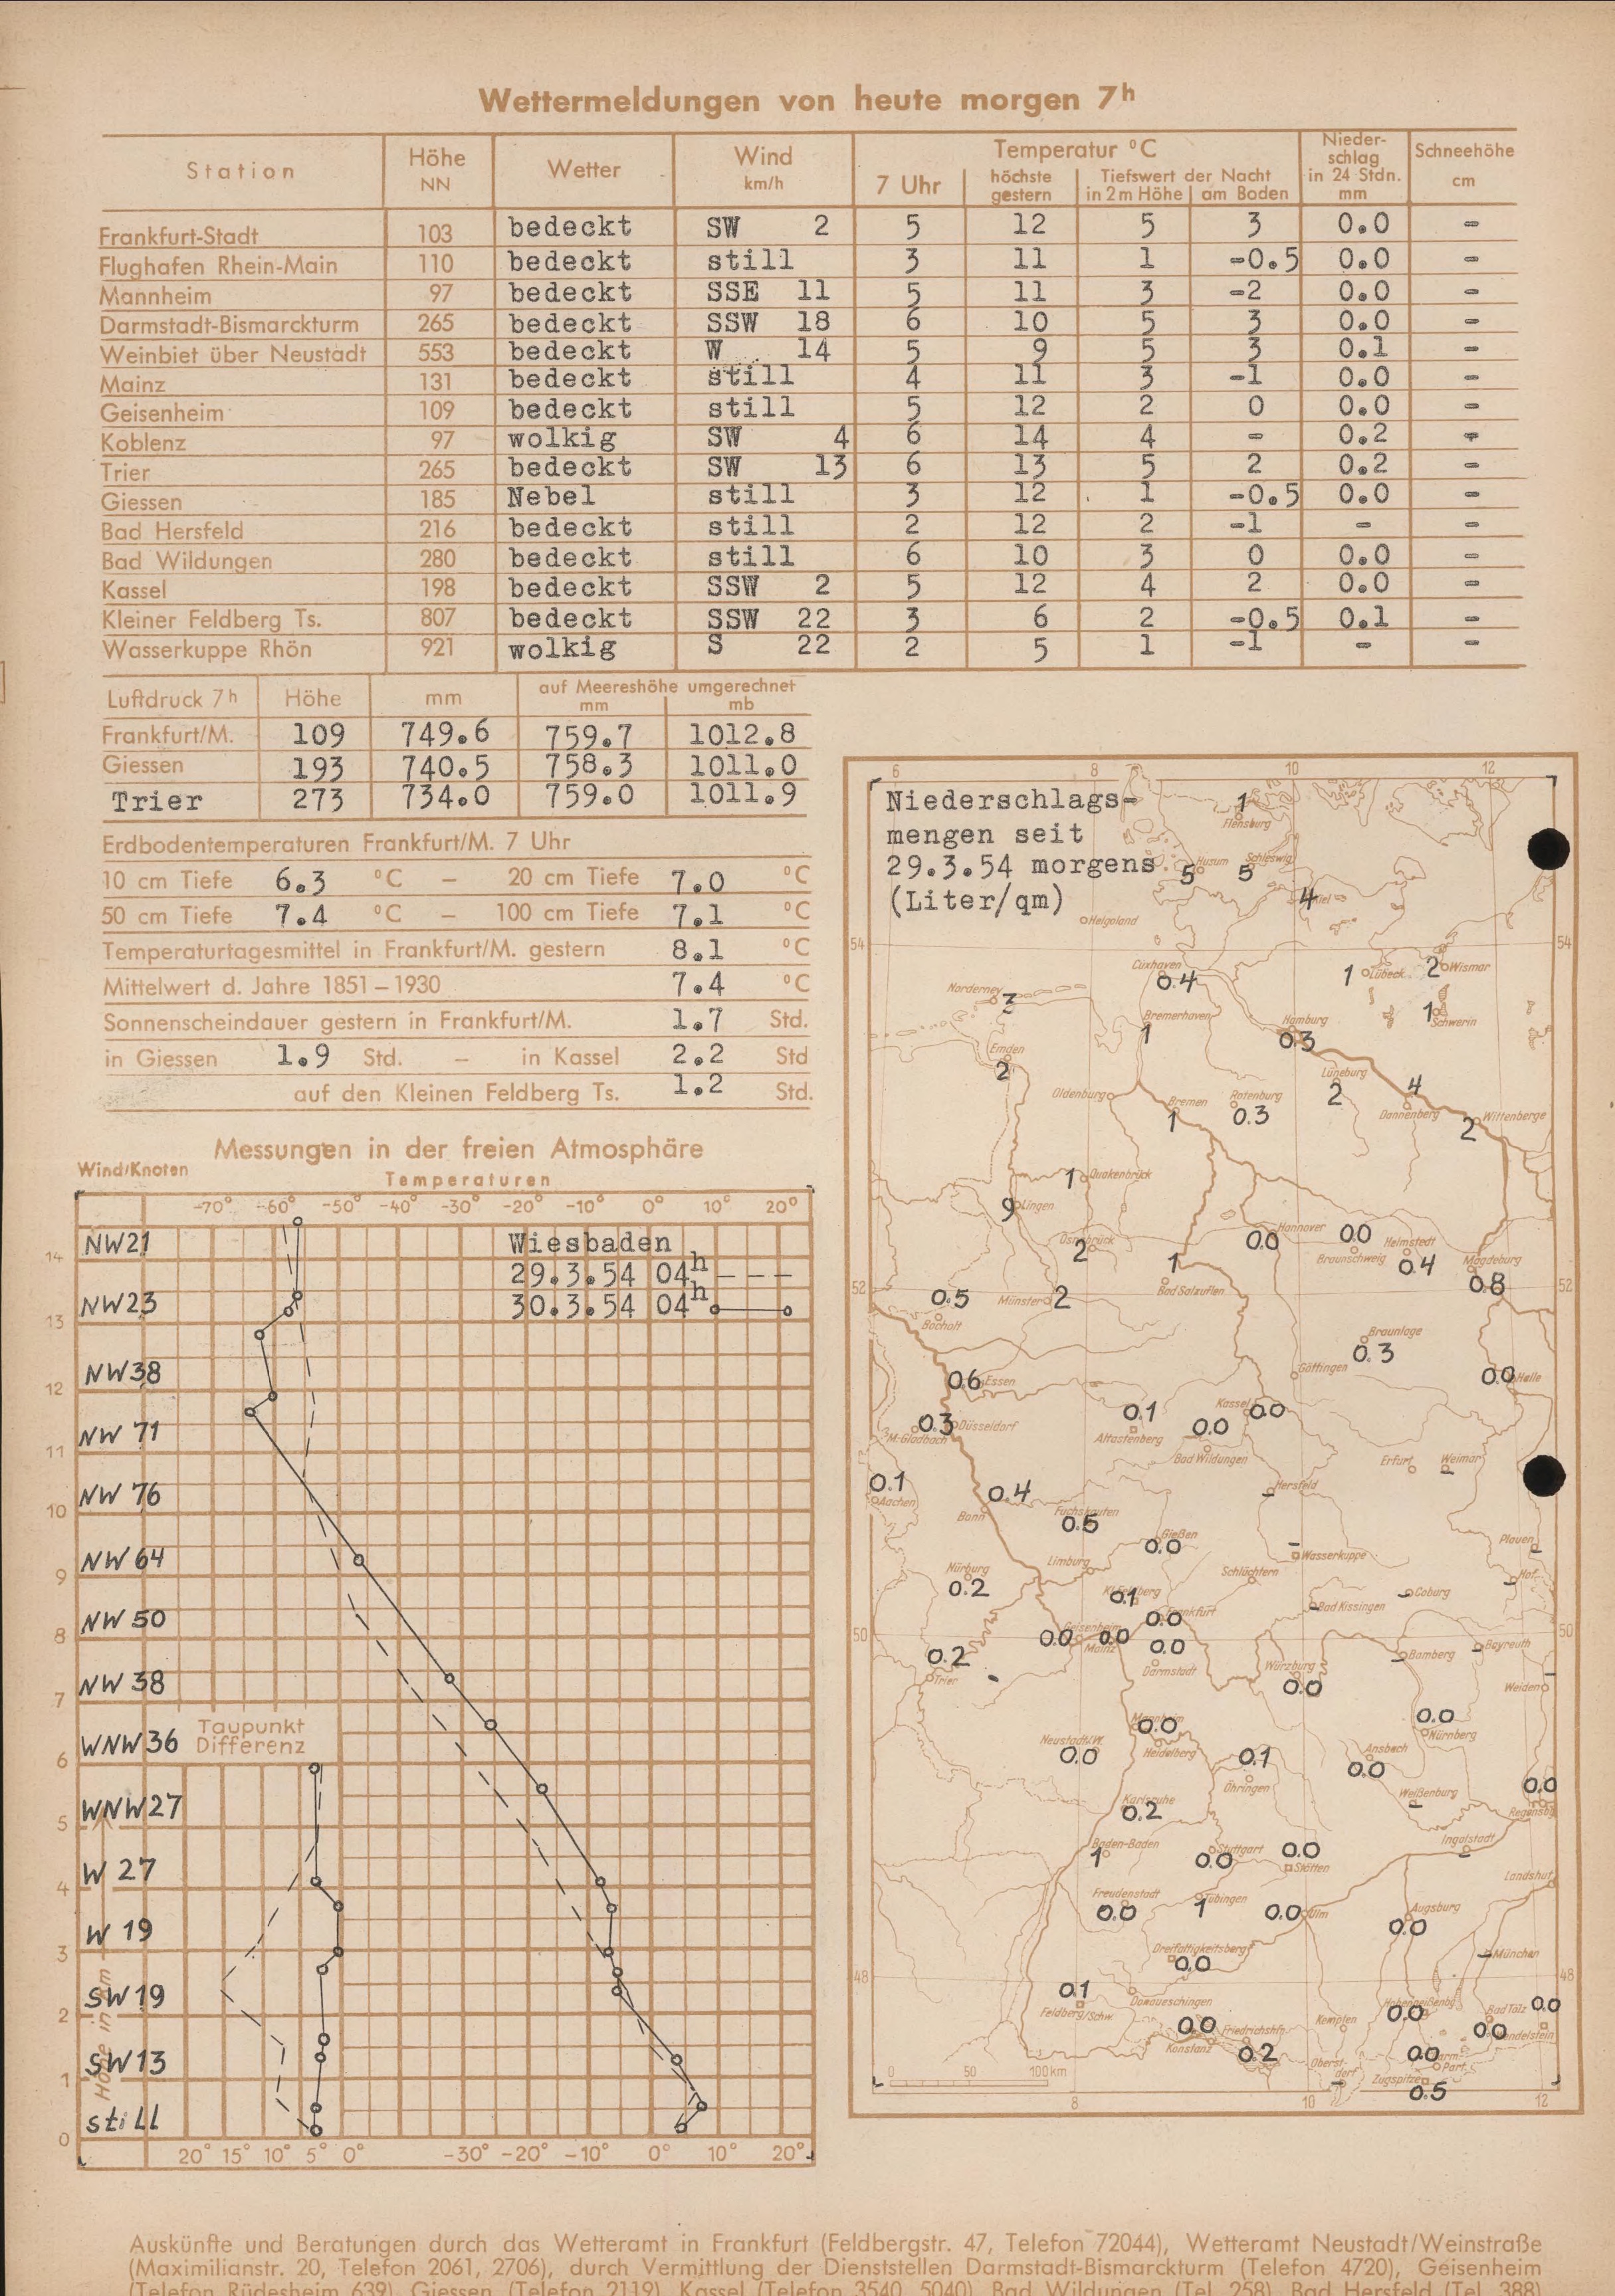 Wettermeldungen von heute morgen 7h
Station Höhe NN Wetter Wind km/h Temperatur °C Nieder-schlag in 24 Stdn. mm Schneehöhe cm
7 Uhr höchste gestern Tiefswert der Nacht in 2 m Höhe am Boden
Frankfurt-Stadt 103 bedeckt SW 2 5 12 5 3 0.0 -
Flughafen Rhein-Main 110 bedeckt still 3 11 1 -0.5 0.0 -
Mannheim 97 bedeckt SSE 11 5 11 3 -2 0.0 -
Darmstadt-Bismarckturm 265 bedeckt SSW 18 6 10 5 3 0.0 -
Weinbiet über Neustadt 553 bedeckt W 14 5 9 5 3 0.1 -
Mainz 131 bedeckt still 4 11 3 -1 0.0 -
Geisenheim 109 bedeckt still 5 12 2 0 0.0 -
Koblenz 97 wolkig SW 4 6 14 4 - 0.2 -
Trier 265 bedeckt SW 13 6 13 5 2 0.2 -
Giessen 185 Nebel still 3 12 1 -0.5 0.0 -
Bad Hersfeld 216 bedeckt still 2 12 2 -1 - -
Bad Wildungen 280 bedeckt still 6 10 3 0 0.0 -
Kassel 198 bedeckt SSW 2 5 12 4 2 0.0 -
Kleiner Feldberg Ts. 807 bedeckt SSW 22 3 6 2 -0.5 0.1 -
Wasserkuppe Rhön 921 wolkig S 22 2 5 1 -1 - -
Luftdruck 7h Höhe mm auf Meereshöhe umgerechnet
mm mb
Frankfurt/M. 109 749.6 759.7 1012.8
Giessen 193 740.5 758.3 1011.0
Trier 273 734.0 759.0 1011.9
Erdbodentemperaturen Frankfurt/M. 7 Uhr
10 cm Tiefe 6.3 °C – 20 cm Tiefe 7.0 °C
50 cm Tiefe 7.4 °C – 100 cm Tiefe 7.1 °C
Temperaturtagesmittel in Frankfurt/M. gestern 8.1 °C
Mittelwert d. Jahre 1851–1930 7.4 °C
Sonnenscheindauer gestern in Frankfurt/M. 1.7 Std.
in Giessen 1.9 Std. – in Kassel 2.2 Std
auf den Kleinen Feldberg Ts. 1.2 Std.
Messungen in der freien Atmosphäre
Wind/Knoten
Temperaturen
-70° -60° -50° -40° -30° -20° -10° 0° 10° 20°
Wiesbaden
29.3.54 04h – – –
30.3.54 04h
14 NW21
13 NW23
12 NW38
11 NW 71
10 NW 76
9 NW 64
8 NW 50
7 NW 38
6 WNW 36
Taupunkt
Differenz
5 WNW27
4 W 27
3 W 19
2 SW 19
1 SW 13
0 still
Höhe in km
20° 15° 10° 5° 0° -30° -20° -10° 0° 10° 20°
Niederschlags-
mengen seit
29.3.54 morgens
(Liter/qm)
6 8 10 12
1 Flensburg
5 Husum 5 Schleswig
4 Kiel
Helgoland
54 54
Cuxhaven 0.4 1 Lübeck 2 Wismar
Norderney 3 Bremerhaven 1 Hamburg 0.3 1 Schwerin
Emden 2 Lüneburg 2 4 Dannenberg
Oldenburg Bremen 1 Rotenburg 0.3 2 Wittenberge
1 Quakenbrück
9 Lingen
Osnabrück 2 Hannover 0.0 0.0 Braunschweig Helmstedt 0.4 Magdeburg 0.8
1 Bad Salzuflen
52 52
0.5 Bocholt Münster 2
Braunlage 0.3
06 Essen Göttingen 0.0 Halle
0.3 Düsseldorf M-Gladbach 0.1 Altastenberg Kassel 0.0 0.0 Bad Wildungen
Erfurt Weimar -
0.1 Aachen 0.4 Bonn Hersfeld -
Fuchskauten 0.5 Gießen 0.0 Plauen -
Limburg - Wasserkuppe
Nürburg 0.2 Schlüchtern Hof -
Kl. Feldberg 0.1 - Bad Kissingen - Coburg
Frankfurt 0.0
50 50
Geisenheim 0.0 Mainz 0.0 0.0 Darmstadt - Bamberg - Bayreuth
0.2 Trier Würzburg 0.0 Weiden -
Mannheim 0.0 0.0 Nürnberg
Neustadt/W. 0.0 Heidelberg 0.1 Öhringen Ansbach 0.0
Weißenburg - 0.0 Regensbg.
Karlsruhe 0.2
Baden-Baden 1 Stuttgart 0.0 0.0 Stötten Ingolstadt -
Landshut
Freudenstadt 0.0 Tübingen 1 0.0 Ulm Augsburg 0.0
Dreifaltigkeitsberg 0.0 - München
48 48
0.1 Feldberg/Schw. Donaueschingen
0.0 Konstanz Friedrichshfn. 0.2 Kempten Hohenpeißenbg. 0.0 Bad Tölz 0.0 0.0 Wendelstein
Oberst-dorf - 0.0 Garm. Part. Zugspitze 0.5
0 50 100 km
8 10 12
Auskünfte und Beratungen durch das Wetteramt in Frankfurt (Feldbergstr. 47, Telefon 72044), Wetteramt Neustadt/Weinstraße
(Maximilianstr. 20, Telefon 2061, 2706), durch Vermittlung der Dienststellen Darmstadt-Bismarckturm (Telefon 4720), Geisenheim
(Telefon Rüdesheim 639), Giessen (Telefon 2119), Kassel (Telefon 3540, 5040), Bad Wildungen (Tel. 258), Bad Hersfeld (Tel. 388)